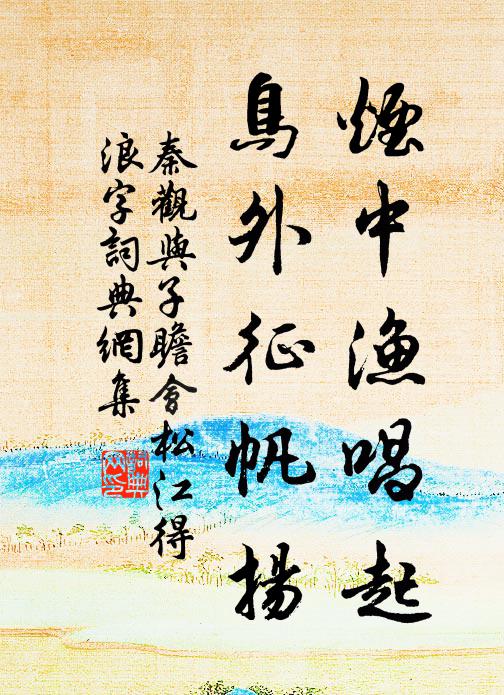 煙中漁唱起
鳥外征帆揚
秦觀與子瞻會松江得
浪字詞典網集